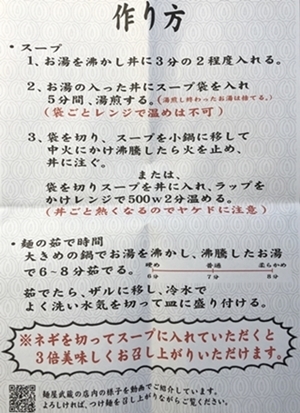 作り方
・スープ
1、お湯を沸かし丼に3分の2程度入れる。
2、お湯の入った丼にスープ袋を入れ
5分間、湯煎する。(湯煎し終わったお湯は捨てる。)
(袋ごとレンジで温めは不可)
3、袋を切り、スープを小鍋に移して
中火にかけ沸騰したら火を止め、
丼に注ぐ。
または、
袋を切りスープを丼に入れ、ラップを
かけレンジで500w2分温める。
(丼ごと熱くなるのでヤケドに注意)
・麺の茹で時間
大きめの鍋でお湯を沸かし、沸騰したお湯
で6~8分茹でる。
硬め 普通 柔らかめ
6分 7分 8分
茹でたら、ザルに移し、冷水で
よく洗い水気を切って皿に盛り付ける。
※ネギを切ってスープに入れていただくと
3倍美味しくお召し上がりいただけます。
麺屋武蔵の店内の様子を動画でご紹介しています。
よろしければ、つけ麺を召し上がりながらご覧ください。